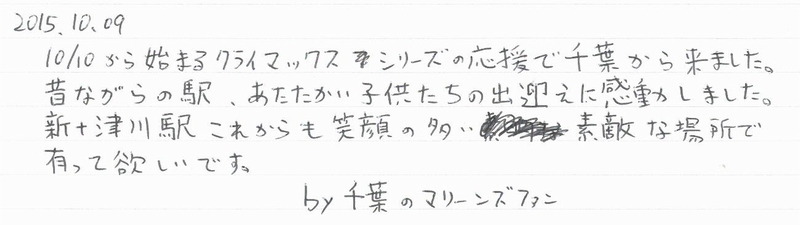 2015.10.09
10/10から始まるクライマックスシリーズの応援で千葉から来ました。
昔ながらの駅、あたたかい子供たちの出迎えに感動かしました。
新十津川駅これからも笑顔の多い素敵な場所で
有って欲しいです。
by千葉のマリーンズファン